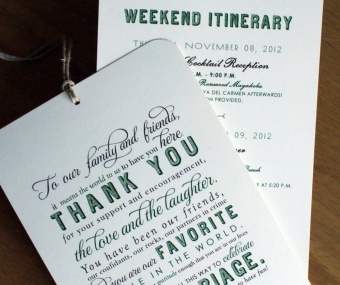 WEEKEND ITINERARY
NOVEMBER 08, 2012
Cocktail Reception
- 9:00 P.M.
Rosewood Mayakoba
YA DEL CARMEN AFTERWARDS!
ION PROVIDED.
MBER 09, 2012
Dinner
To our family and friends,
it means the world to us to have you here.
THANK YOU
for your support and encouragement,
the love and the laughter.
You have been our friends,
our confidants, our rocks, our partners in crime
you are our FAVORITE
IN THE WORLD.
gratitude enough that you are in our lives
THIS WAY TO celebrate
to have fun!